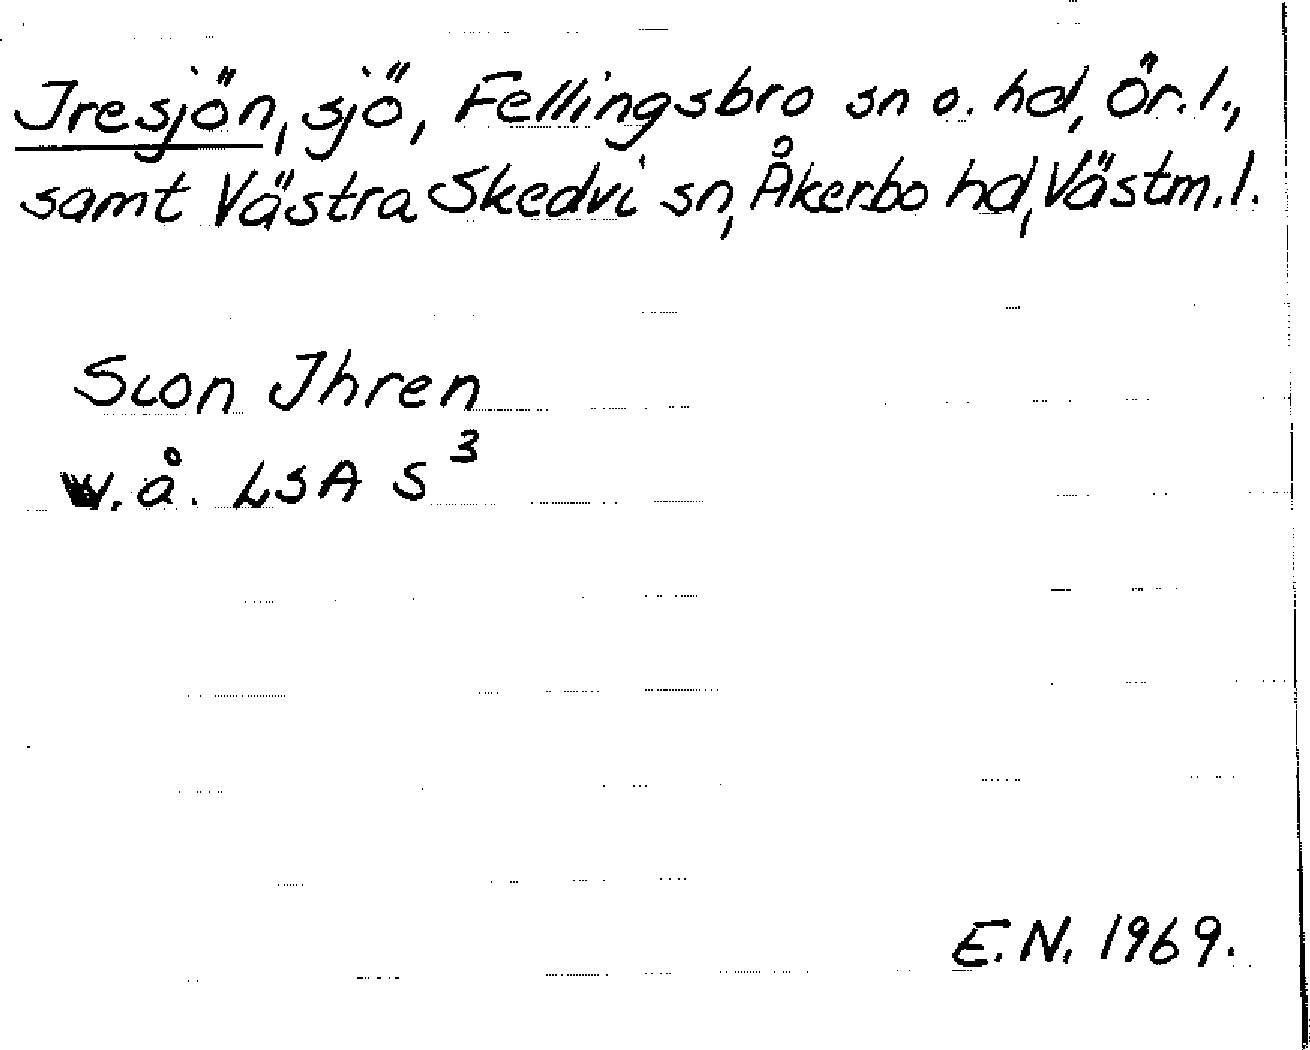 Iresjön, sjö, Fellingsbro sn o. hd, Ör. l.,
samt Västra Skedvi sn, Åkerbo hd, Västm. l.
Sion Ihren
w. å. LSA S³
E. N. 1969.